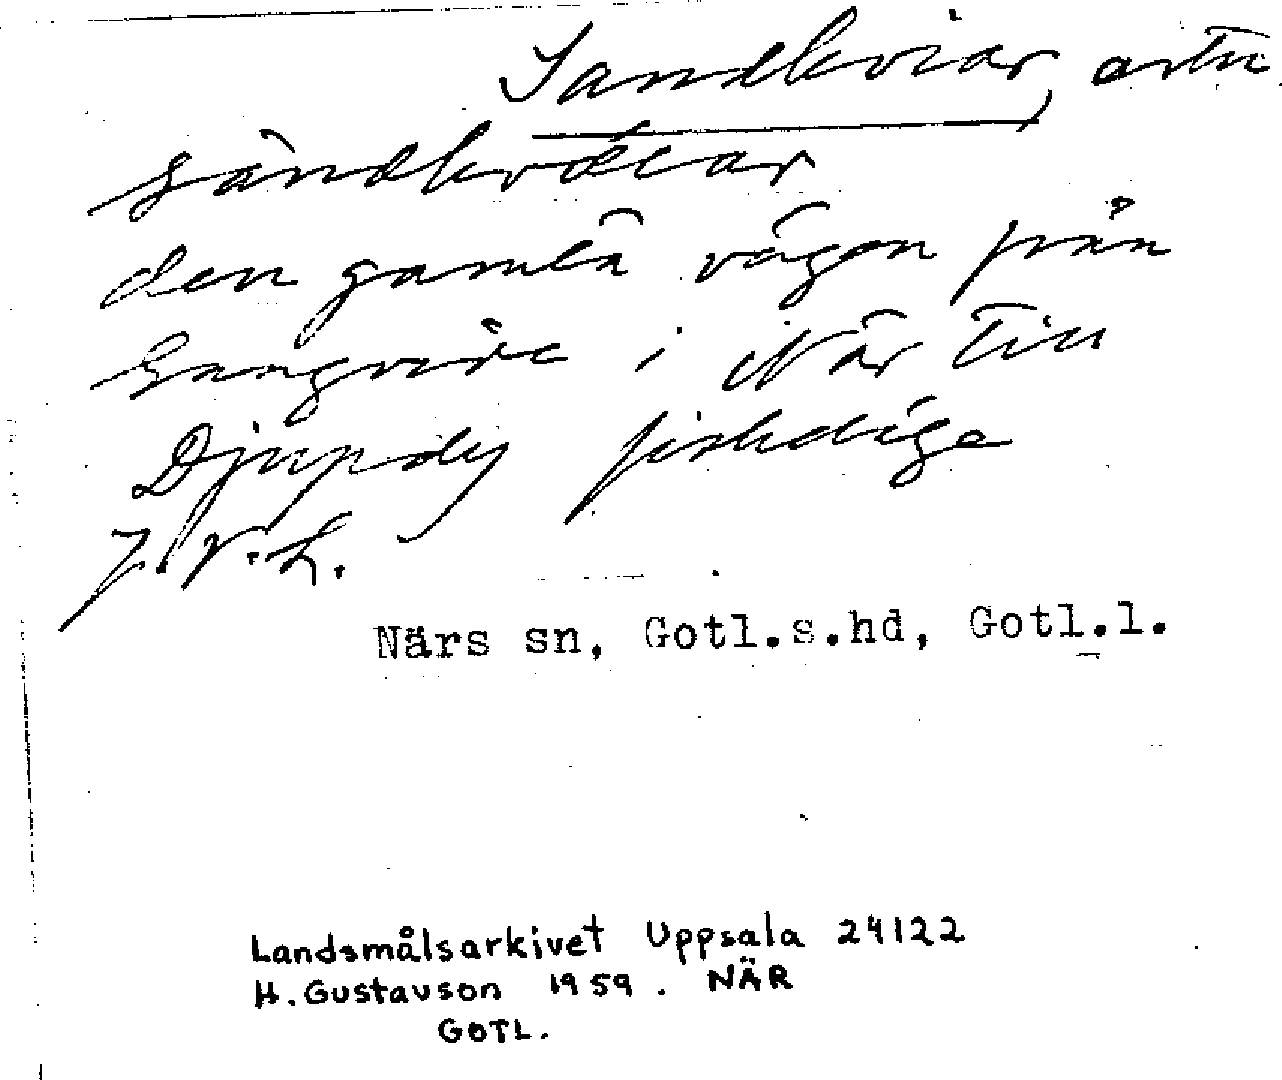 Sandkviar,
sandkvøiar
den gamla vägen från
Gangvide i När till
Djupdy fiskeläge
J.V.L.
Närs sn, Gotl.s.hd, Gotl.l.
Landsmålsarkivet Uppsala 24122
H. Gustavson 1959. NÄR
GOTL.